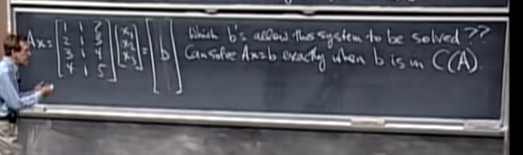 Ax = [1 1 2; 2 1 3; 3 1 4; 4 1 5] [x₁; x₂; x₃] = [b] Which b's allow this system to be solved??
Can solve Ax=b exactly when b is in C(A).